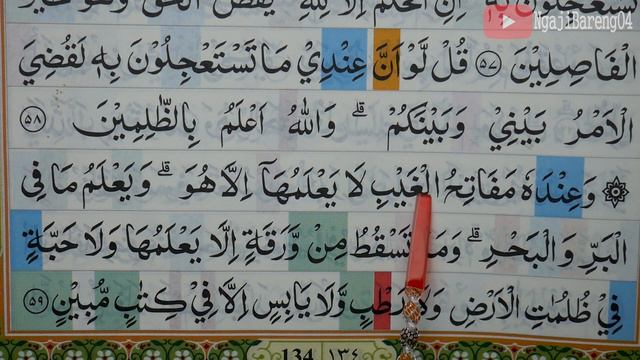 NgajiBareng04
تَسْتَعْجِلُوْنَ بِهٖ اِنِ الْحُكْمُ اِلَّا لِلّٰهِ يَقُصُّ الْحَقَّ وَهُوَ خَيْرُ
الْفَاصِلِيْنَ ٥٧ قُلْ لَّوْ اَنَّ عِنْدِيْ مَا تَسْتَعْجِلُوْنَ بِهٖ لَقُضِيَ
الْاَمْرُ بَيْنِيْ وَبَيْنَكُمْ ۗ وَاللّٰهُ اَعْلَمُ بِالظّٰلِمِيْنَ ٥٨
۞ وَعِنْدَهٗ مَفَاتِحُ الْغَيْبِ لَا يَعْلَمُهَآ اِلَّا هُوَ ۗ وَيَعْلَمُ مَا فِى
الْبَرِّ وَالْبَحْرِ ۗ وَمَا تَسْقُطُ مِنْ وَّرَقَةٍ اِلَّا يَعْلَمُهَا وَلَا حَبَّةٍ
فِيْ ظُلُمٰتِ الْاَرْضِ وَلَا رَطْبٍ وَّلَا يَابِسٍ اِلَّا فِيْ كِتٰبٍ مُّبِيْنٍ ٥٩
134 ١٣٤